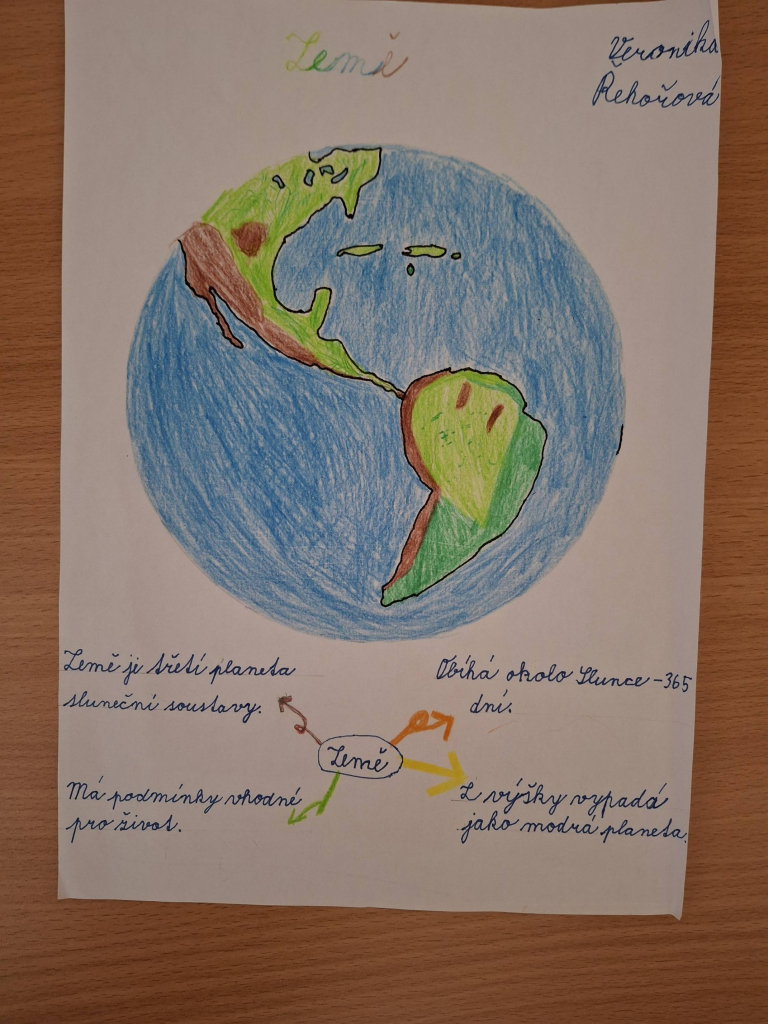 Země
Veronika
Řehořová
Země je třetí planeta
sluneční soustavy.
Obíhá okolo Slunce - 365
dní.
Země
Má podmínky vhodné
pro život.
Z výšky vypadá
jako modrá planeta.